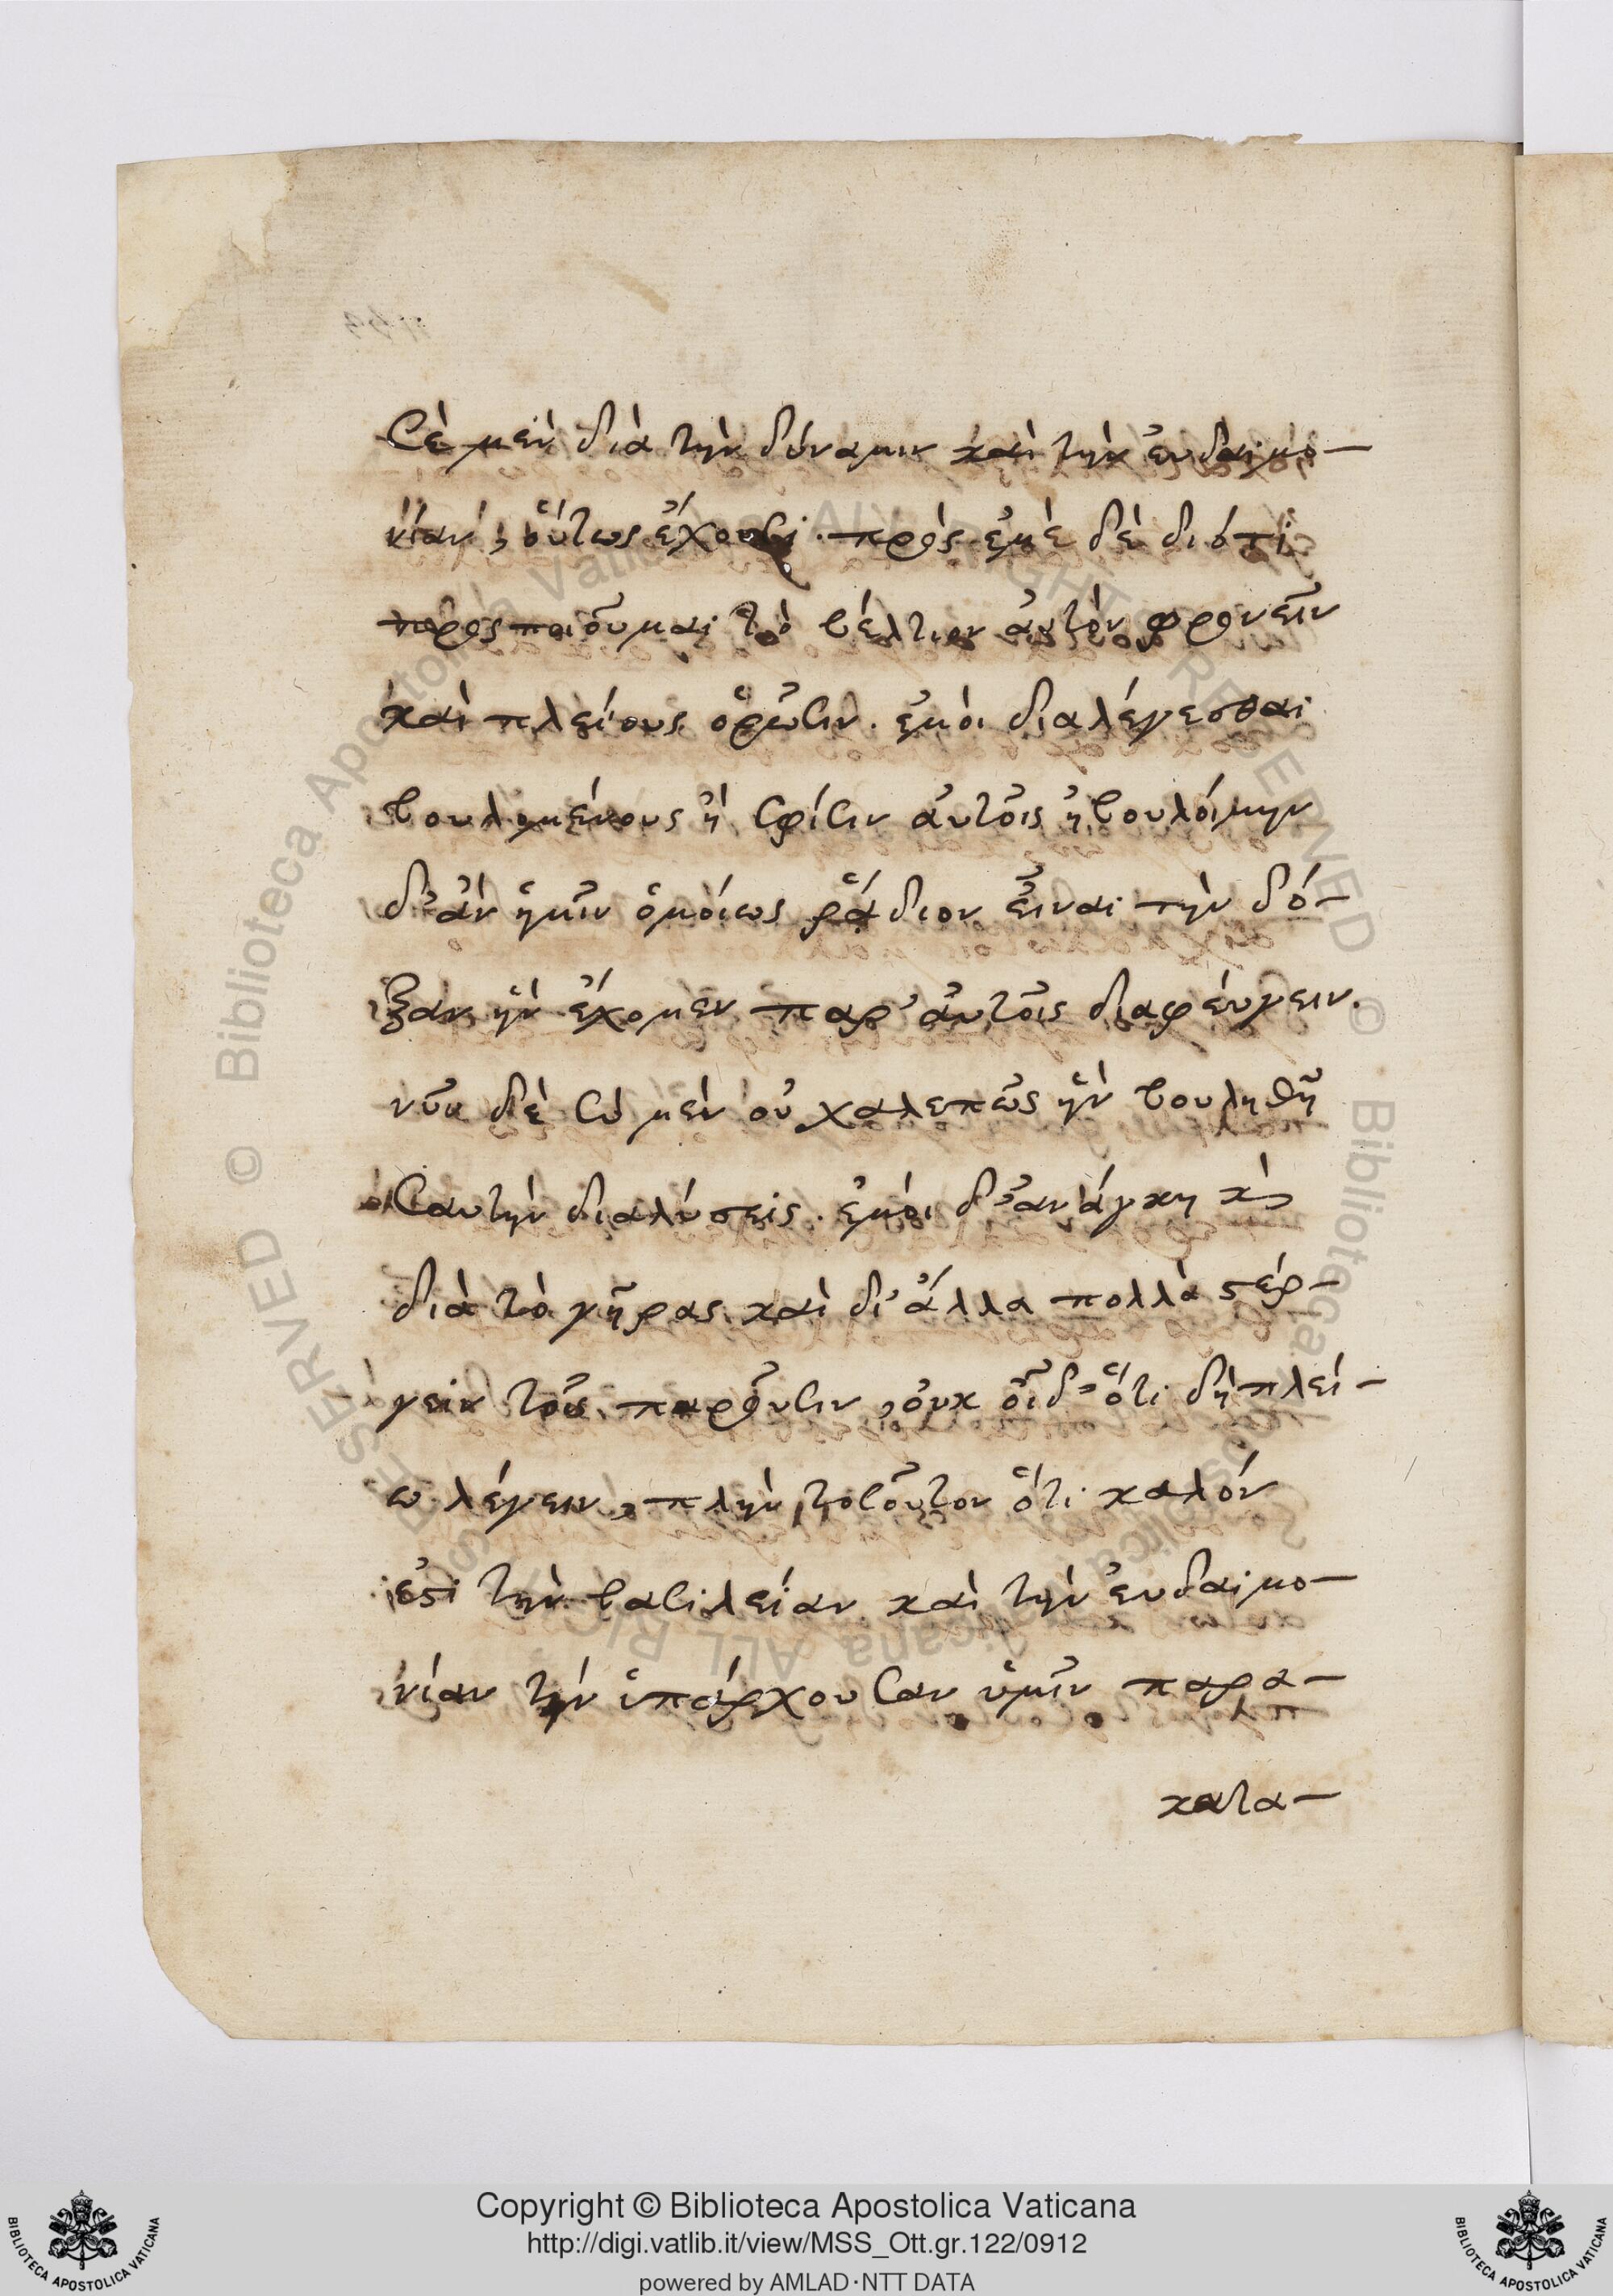 Σὲ μὲν διὰ τὴν δύναμιν καὶ τὴν ἐυδαιμο-
νίαν, ὅυτως ἔχουσι. πρὸς ἐμὲ δὲ διότι
προσποιοῦμαι τὸ βέλτιον ἀυτὸν φρονεῖν
καὶ πλείους ὁρῶσιν. ἐμόι διαλέγεσθαι
βουλομένους ἢ σφίσιν ἀυτοῖς ἠβουλόιμην
δ' ἂν ἡμῖν ὁμόιως ῥάδιον εἶναι τὴν δό-
ξαν ἣν ἔχομεν παρ' ἀυτοῖς διαφέυγειν.
νῦν δὲ σὺ μὲν οὐ χαλεπῶς ἢν βουληθῇ
σαυτὴν διαλύσεις. ἐμόι δ' ἀνάγκη κὶ
διὰ τὸ γῆρας καὶ δι' ἄλλα πολλὰ στέρ-
γειν τοῖς παροῦσιν, ὀυκ οἶδ' ὅτι δὴ πλεί-
ω λέγειν, πλὴν τοσοῦτον ὅτι καλόν
ἐστι τὴν βασιλείαν καὶ τὴν ἐυδαιμο-
νίαν τὴν ὑπάρχουσαν ὑμῖν παρα-
κατα-
Copyright © Biblioteca Apostolica Vaticana
http://digi.vatlib.it/view/MSS_Ott.gr.122/0912
powered by AMLAD·NTT DATA
BIBLIOTECA APOSTOLICA VATICANA
BIBLIOTECA APOSTOLICA VATICANA